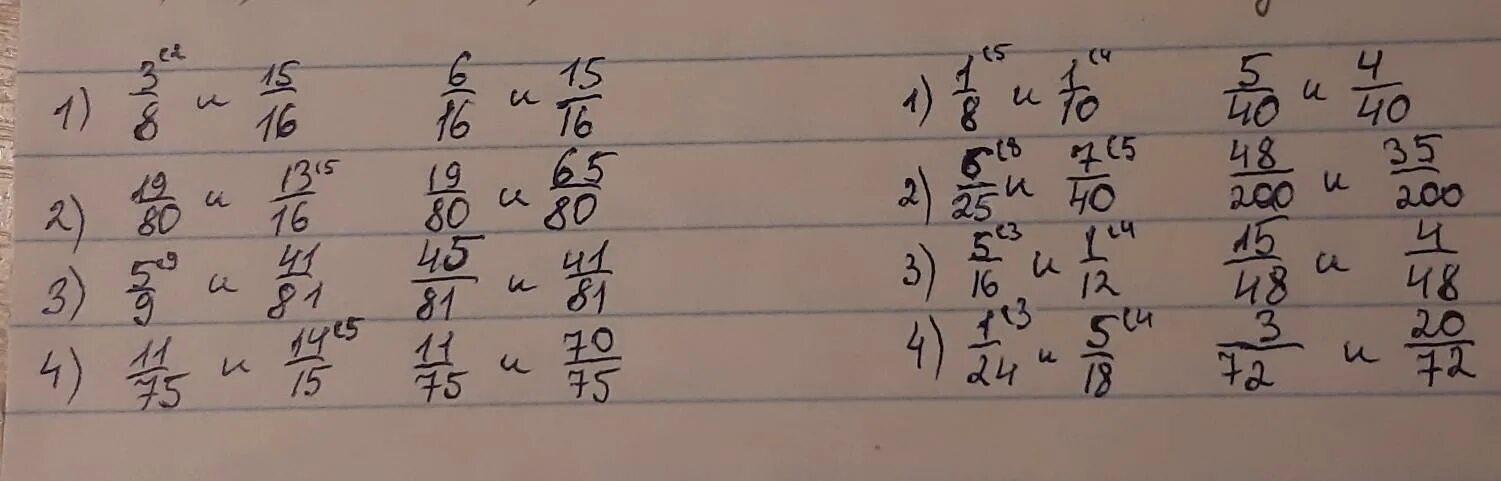 1) 3/8 и 15/16 6/16 и 15/16
2) 19/80 и 13/16 19/80 и 65/80
3) 5/9 и 41/81 45/81 и 41/81
4) 11/75 и 14/15 11/75 и 70/75
1) 1/8 и 1/10 5/40 и 4/40
2) 6/25 и 7/40 48/200 и 35/200
3) 5/16 и 1/12 15/48 и 4/48
4) 1/24 и 5/18 3/72 и 20/72